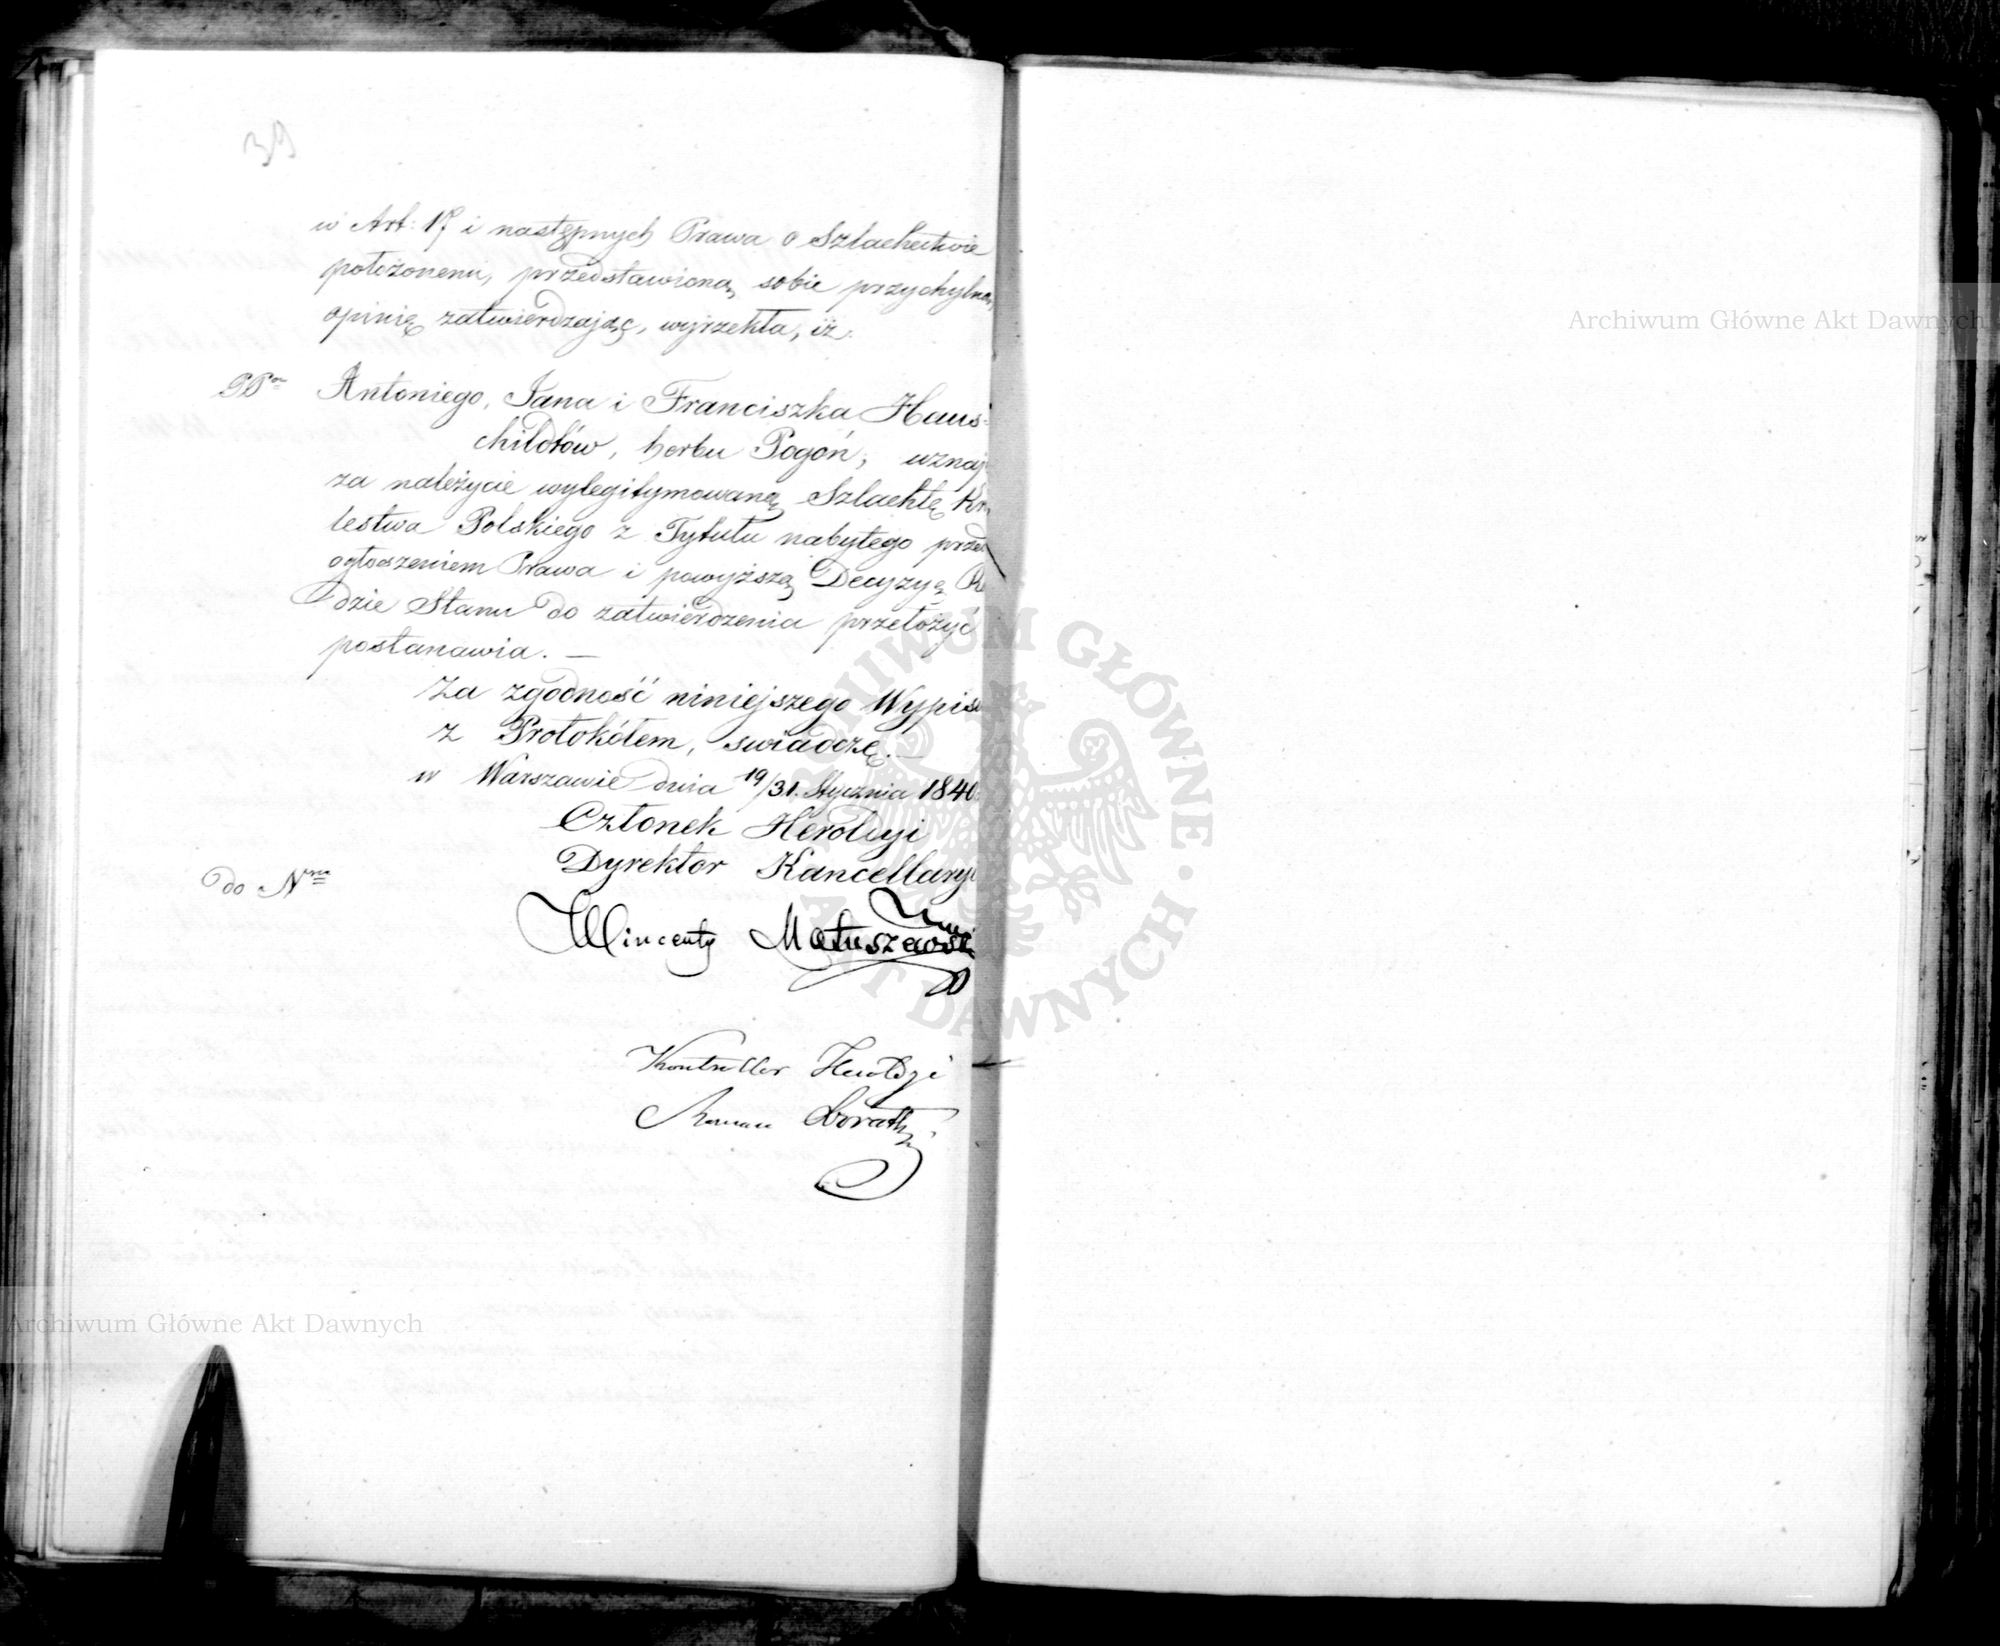 39
w Art: 17 i następnych Prawa o Szlachectwie
położonemi, przedstawioną sobie przychylną
opinię zatwierdzając, wyrzekła, iż:
PPów Antoniego, Jana i Franciszka Haus=
childtów, herbu Pogoń, uznaje
za należycie wylegitymowaną Szlachtę Kró
lestwa Polskiego z Tytułu nabytego przed
ogłoszeniem Prawa i powyższą Decyzyę Ra
dzie Stanu do zatwierdzenia przełożyć
postanawia. —
Za zgodność niniejszego Wypisu
z Protokółem, swiadczę. —
w Warszawie dnia 19/31. Stycznia 1840.
Członek Heroldyi
Dyrektor Kancellaryi
do Nra
Wincenty Matuszewski
Kontroller Heroldyi
Roman
Archiwum Główne Akt Dawnych
Archiwum Główne Akt Dawnych
ARCHIWUM GŁÓWNE · AKT DAWNYCH ·